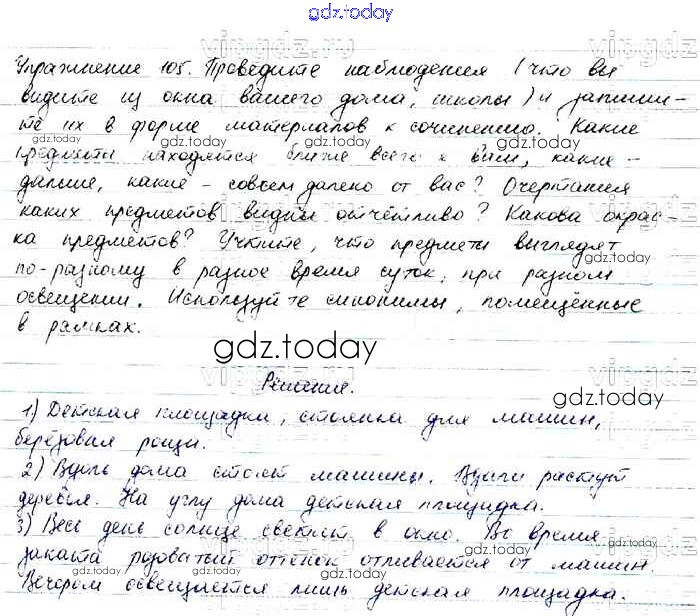 gdz.today
Упражнение 105. Проведите наблюдения (что вы
видите из окна вашего дома, школы) и запиши-
те их в форме материалов к сочинению. Какие
предметы находятся ближе всего к вам, какие -
дальше, какие - совсем далеко от вас? Очертания
каких предметов видны отчётливо? Какова окрас-
ка предметов? Учтите, что предметы выглядят
по-разному в разное время суток, при разном
освещении. Используйте синонимы, помещённые
в рамках.
gdz.today
Решение.
1) Детская площадки, стоянка для машин,
берёзовая рощи.
2) Вдоль дома стоят машины. Вдали растут
деревья. На углу дома детская площадка.
3) Весь день солнце светит в окно. Во время
заката розоватый оттенок отливается от машин.
Вечером освещается лишь детская площадка.